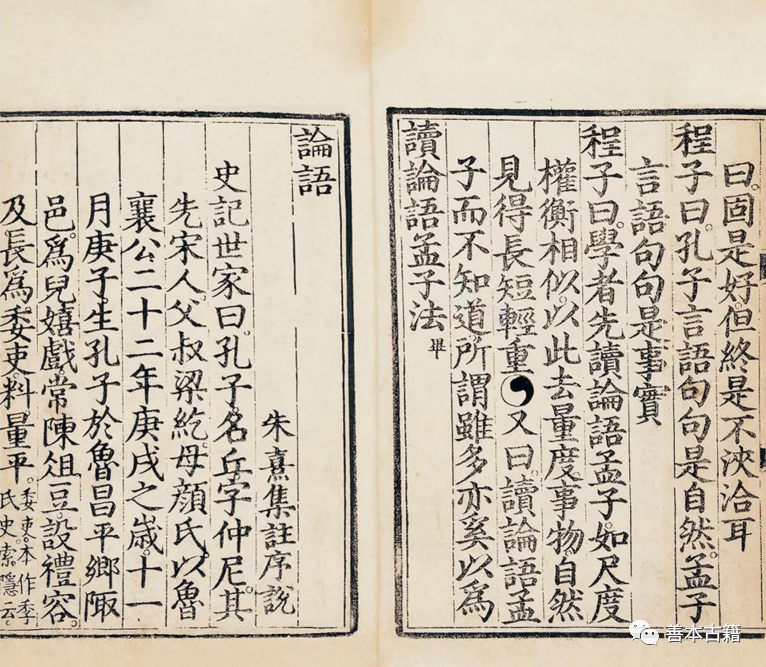 曰。固是好。但終是不浹洽耳
程子曰。孔子言語句句是自然。孟子
言語句句是事實
程子曰。學者先讀論語孟子。如尺度
權衡相似。以此去量度事物。自然
見得長短輕重又曰。讀論語孟
子而不知道。所謂雖多亦奚以為
讀論語孟子法畢
論語
朱熹集註序說
史記世家曰。孔子名丘。字仲尼。其
先宋人。父叔梁紇。母顏氏。以魯
襄公二十二年庚戌之歲。十一
月庚子生孔子於魯昌平鄉陬
邑。爲兒嬉戲。常陳俎豆。設禮容。
及長。爲委吏。料量平。委吏。本作季
氏史。索隱云。
善本古籍